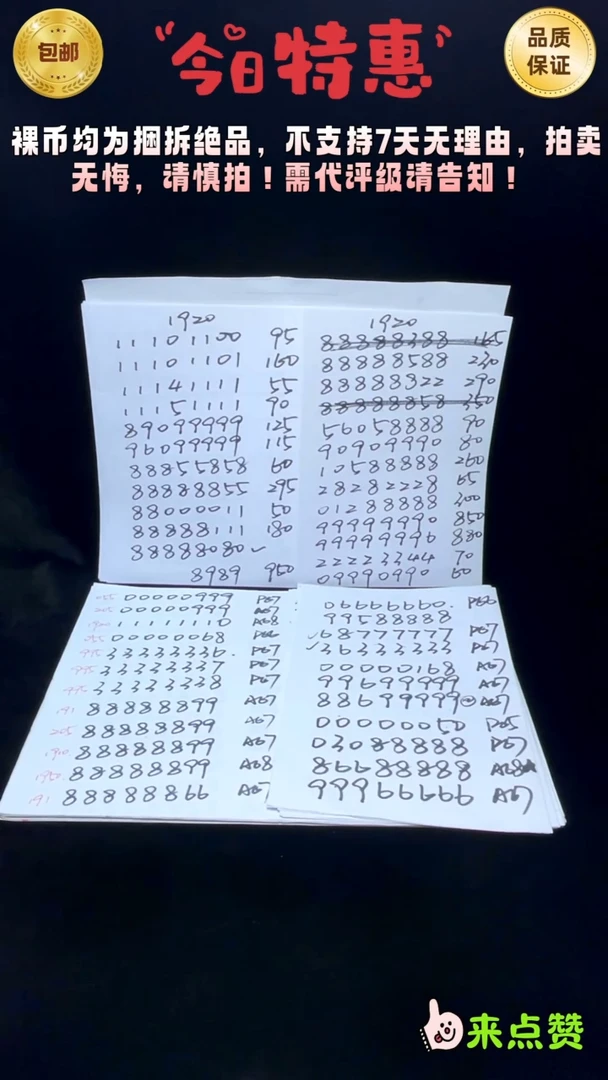 包邮
今日特惠
品质
保证
裸币均为捆拆绝品，不支持7天无理由，拍卖
无悔，请慎拍！需代评级请告知！
1920
11101100 95
11101101 160
11141111 55
11151111 90
89099999 125
96099999 115
88855858 60
88888855 295
88000011 50
88888111 180
88888080 ✓
8989 950
1920
88888388 165
88888588 230
88888322 290
88888858 350
56058888 90
90909990 80
10588888 260
28282228 65
01288888 300
99999990 850
99999996 880
22223344 70
09990990 60
00000999 P67
205 00000999 A67
11111110 A68
00000068
995 33333336. P67
995 33333337 P67
995 33333338 P67
191 88888899 A67
205 88888899 A67
1910 88888899 A67
1950. 88888899 A68
191 88888866 A67
06666660. P66
99588888
✓ 68777777 P67
✓ 36333333 P67
00000168 A67
99699999 A67
88699999 A67
00000050 P65
03088888 P67
86688888 A68
99966666 A67
来点赞